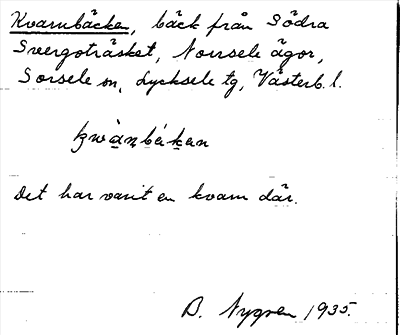 Kvarnbäcken, bäck från Södra
Svergoträsket, Norrsele ägor,
Sorsele sn, Lycksele tg, Västerb. l.
Det har varit en kvarn där.
B. Nygren 1935.